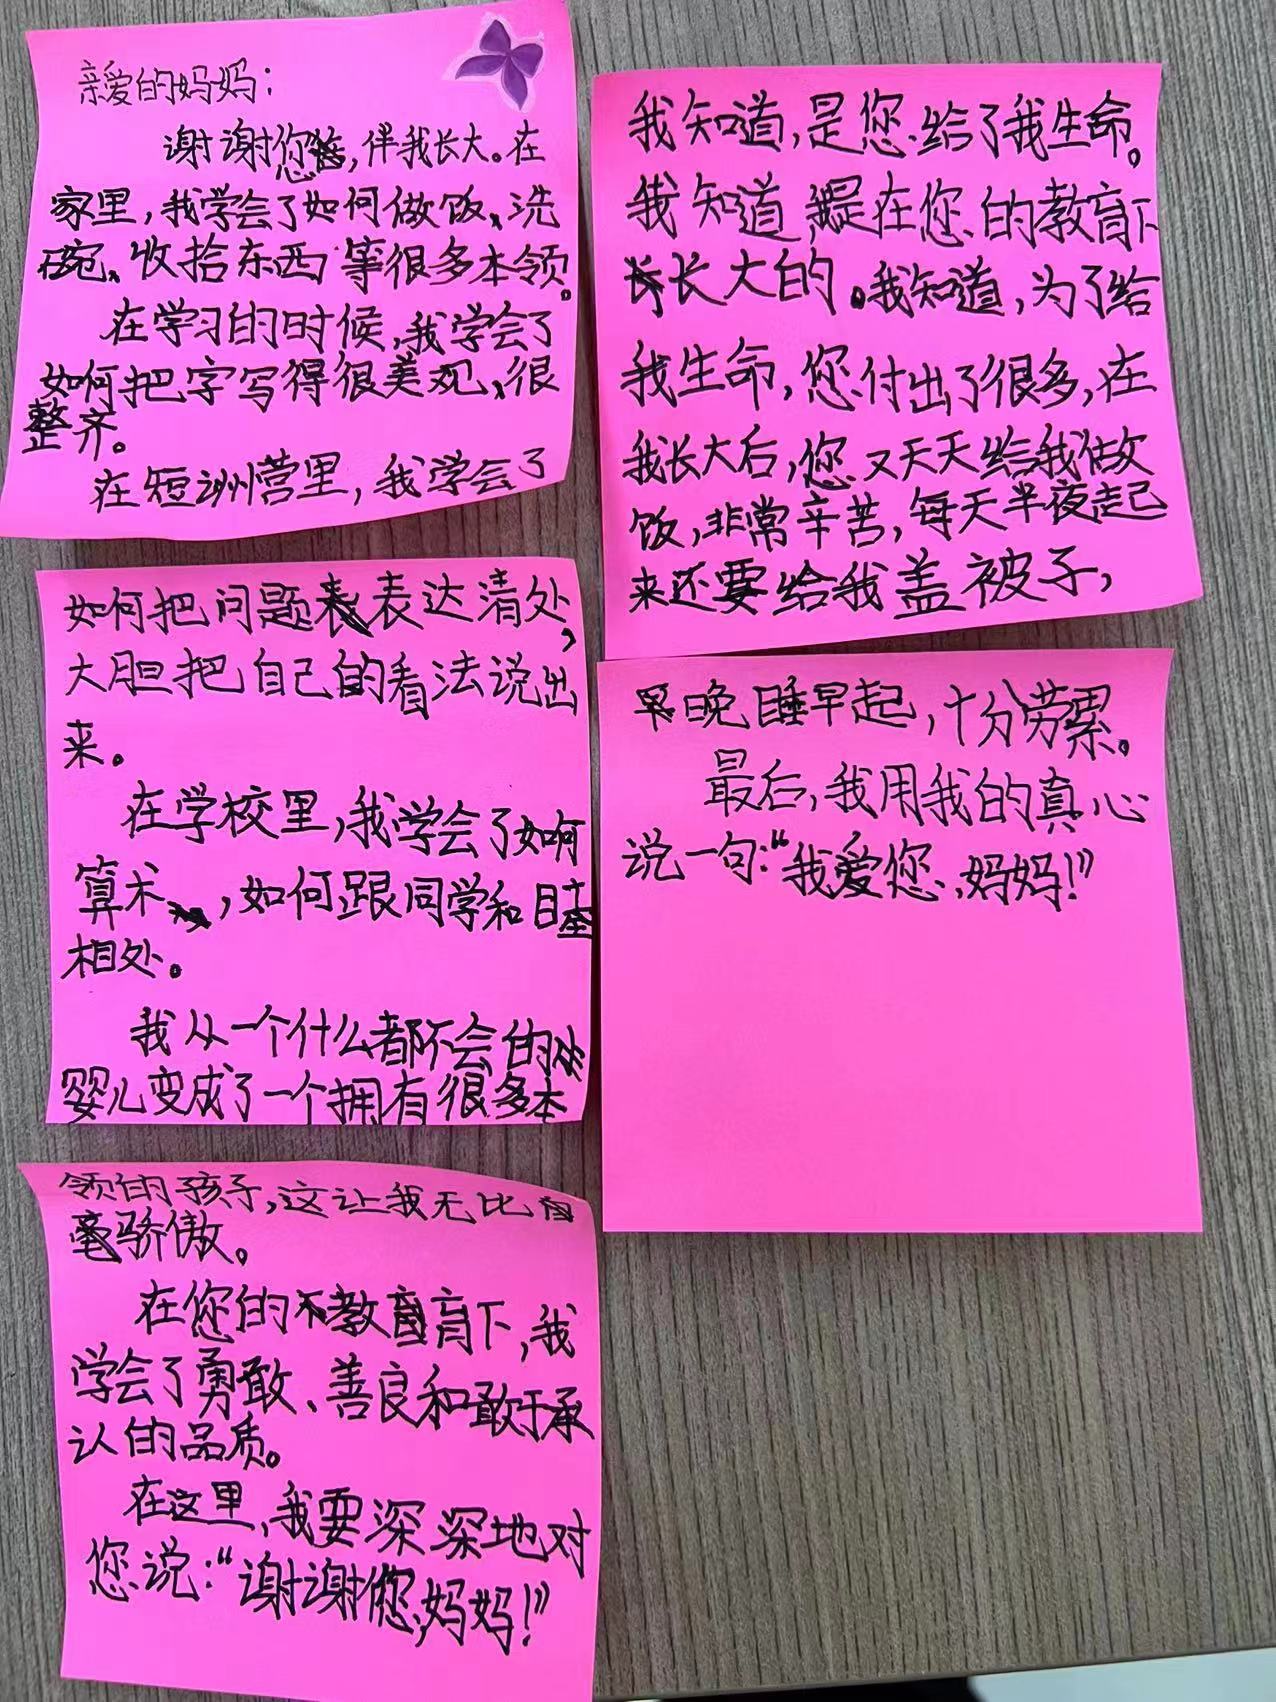 亲爱的妈妈：
谢谢您，伴我长大。在
家里，我学会了如何做饭、洗
碗、收拾东西等很多本领。
在学习的时候，我学会了
如何把字写得很美观、很
整齐。
在短训营里，我学会了
如何把问题表达清处，
大胆把自己的看法说出
来。
在学校里，我学会了如何
算术，如何跟同学和睦
相处。
我从一个什么都不会的
婴儿变成了一个拥有很多本
领的孩子，这让我无比自
骄傲。
在您的教育下，我
学会了勇敢、善良和敢于承
认的品质。
在这里，我要深深地对
您说：“谢谢您，妈妈！”
我知道，是您给了我生命。
我知道，我是在您的教育下
长大的。我知道，为了给
我生命，您付出了很多，在
我长大后，您又天天给我做
饭，非常辛苦，每天半夜起
来还要给我盖被子，
晚睡早起，十分劳累。
最后，我用我的真心
说一句：“我爱您，妈妈！”